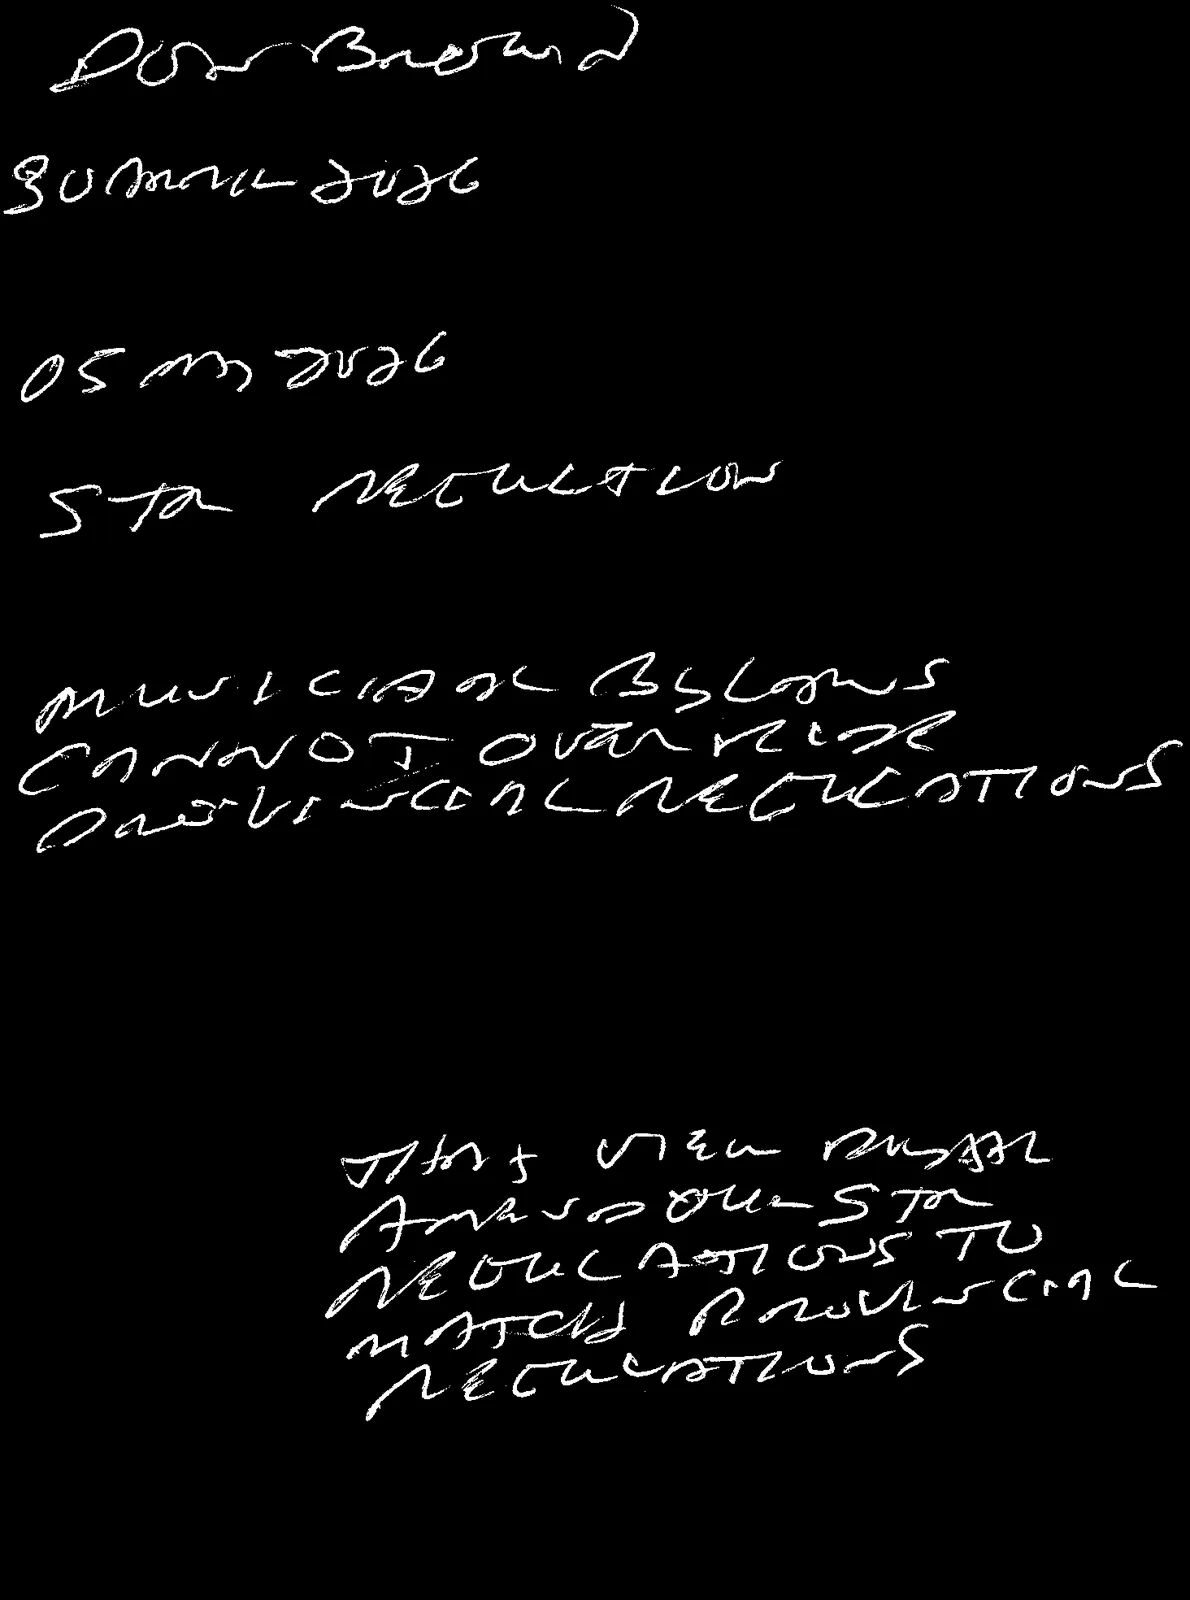 Don Brown
30 APRIL 2026
05 MAY 2026
STR REGULATION
MUNICIPAL BYLAWS
CANNOT OVERRIDE
PROVINCIAL REGULATIONS
THAT VIEW ROYAL
AMEND OUR STR
REGULATIONS TO
MATCH PROVINCIAL
REGULATIONS